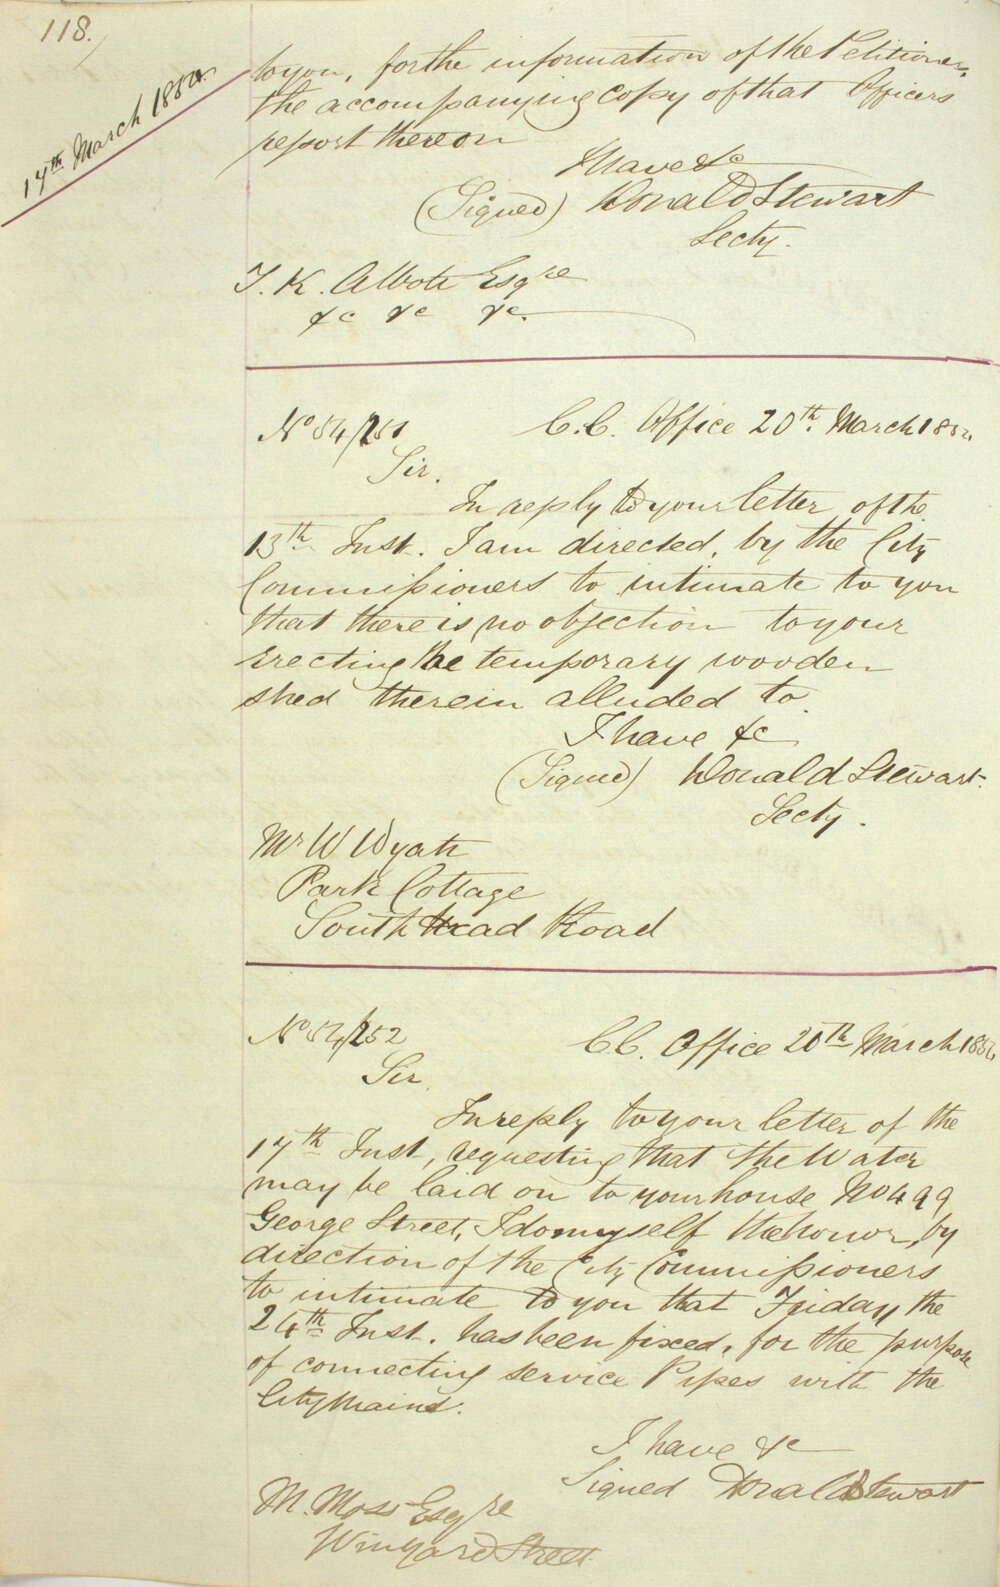 118.
17th March 1854.
to you, for the information of the Petitioner,
the accompanying copy of that Officers
report thereon
I have &c
(Signed) Donald Stewart
Secty.
T. K. Abbott Esqre
&c &c &c.
No 54/251
C.C. Office 20th March 1854
Sir.
In reply to your letter of the
13th Inst. I am directed, by the City
Commissioners to intimate to you
that there is no objection to your
erecting the temporary wooden
shed therein alluded to.
I have &c
(Signed) Donald Stewart.
Secty.
Mr W Wyatt
Park Cottage
South Head Road
No 54/252
C.C. Office 20th March 1854
Sir,
In reply to your letter of the
17th Inst, requesting that the Water
may be laid on to your house No 499
George Street, I do myself the honor, by
direction of the City Commissioners
to intimate to you that Friday, the
24th Inst. has been fixed, for the purpose
of connecting service Pipes with the
City Mains.
I have &c
Signed Donald Stewart
M. Moss Esqre
Winyard Street